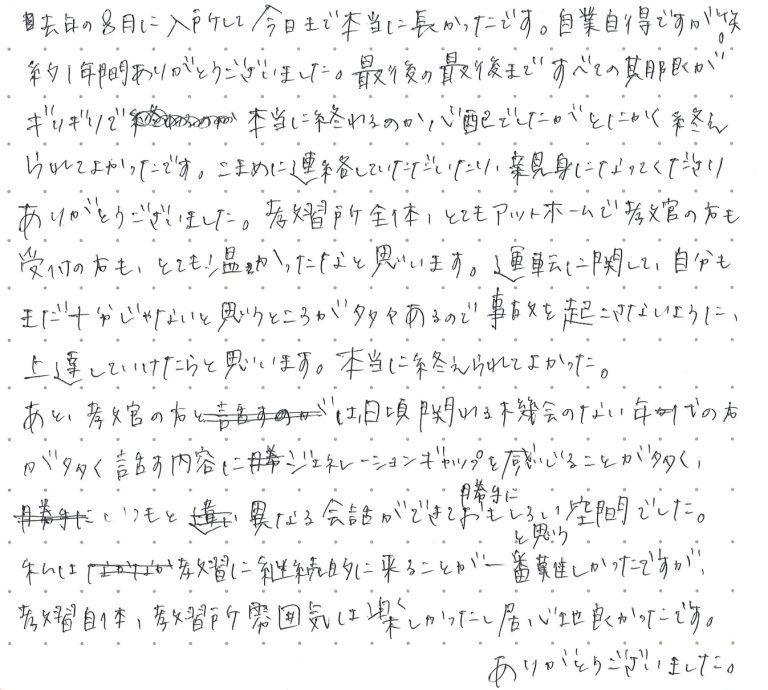 去年の8月に入所して今日まで本当に長かったです。自業自得ですが笑。
約1年間ありがとうございました。最後の最後まですべての期限が
ギリギリで 本当に終われるのか心配でしたがとにかく終え
られてよかったです。こまめに連絡していただいたり、親身になってくださり
ありがとうございました。教習所全体、とてもアットホームで教官の方も
受付の方も、とても温かったなと思います。運転に関して、自分も
まだ十分じゃないと思うところが多々あるので事故を起こさないように、
上達していけたらと思います。本当に終えられてよかった。
あと、教官の方と話すのがは、日頃関われる機会のない年代の方
が多く話す内容に勝ジェネレーションギャップを感じることが多く、
勝手にいつもと違い異なる会話ができて勝手におもしろい空間でした。
と思う
私は 教習に継続的に来ることが一番難しかったですが、
教習自体、教習所雰囲気は楽しかったし居心地良かったです。
ありがとうございました。